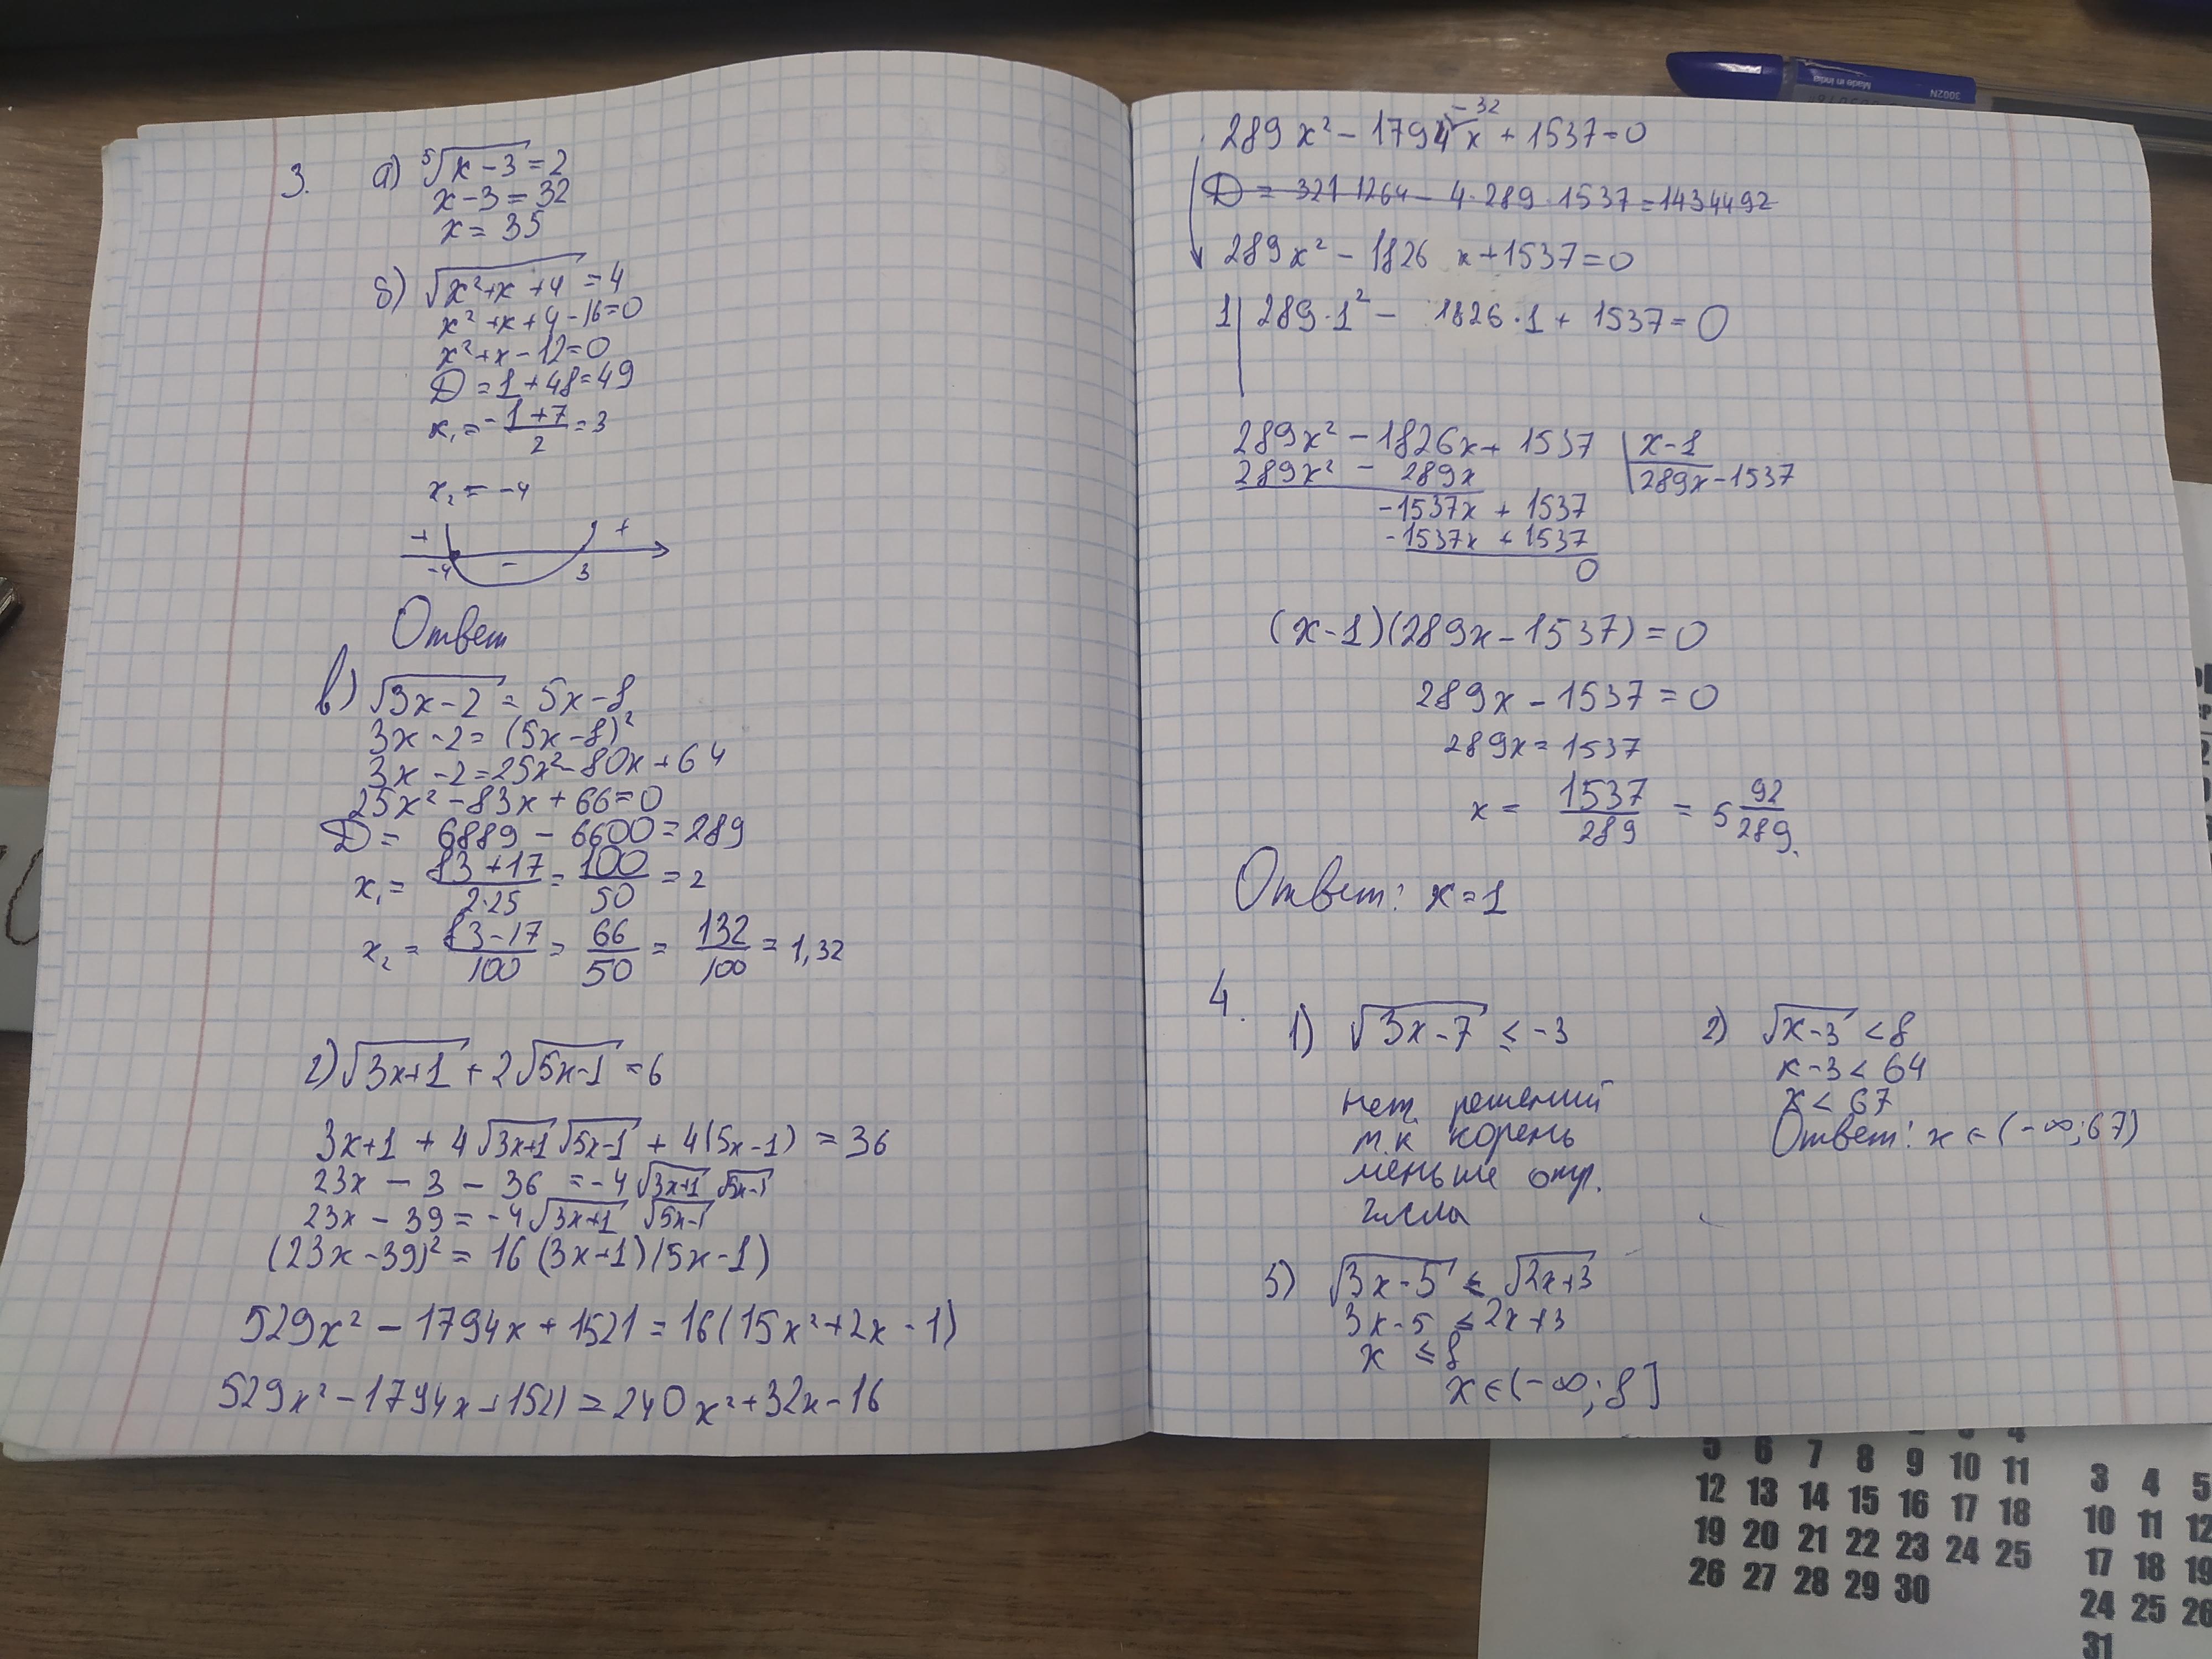 3. а) ⁵√(x-3) = 2
x-3 = 32
x = 35
б) √(x²+x+4) = 4
x²+x+4-16=0
x²+x-12=0
D = 1+48=49
x₁ = (-1+7)/2 = 3
x₂ = -4
+ - +
-4 3
Ответ
в) √(3x-2) = 5x-8
3x-2 = (5x-8)²
3x-2=25x²-80x+64
25x²-83x+66=0
D = 6889 - 6600 = 289
x₁ = (83+17)/(2·25) = 100/50 = 2
x₂ = (83-17)/100 = 66/50 = 132/100 = 1,32
г) √(3x+1) + 2√(5x-1) = 6
3x+1 + 4√(3x+1) √(5x-1) + 4(5x-1) = 36
23x - 3 - 36 = -4√(3x+1) √(5x-1)
23x - 39 = -4√(3x+1) √(5x-1)
(23x-39)² = 16(3x+1)(5x-1)
529x² - 1794x + 1521 = 16(15x²+2x-1)
529x² - 1794x + 1521 = 240x²+32x-16
-32
289x² - 1794x + 1537=0
D = 321 1264 - 4·289·1537=1434492
289x² - 1826 x+1537=0
1 | 289·1² - 1826·1 + 1537 = 0
289x² - 1826x + 1537 | x-1
289x² - 289x | 289x-1537
-1537x + 1537
-1537x + 1537
0
(x-1)(289x-1537) = 0
289x - 1537 = 0
289x = 1537
x = 1537/289 = 5 92/289.
Ответ: x=1
4. 1) √(3x-7) ≤ -3
нет решений
т.к корень
меньше отр.
числа
2) √(x-3) < 8
x-3 < 64
x < 67
Ответ: x ∈ (-∞;67)
3) √(3x-5) ≤ √(2x+3)
3x-5 ≤ 2x+3
x ≤ 8
x ∈ (-∞; 8]
Made in India
3002N
5 6 7 8 9 10 11
12 13 14 15 16 17 18
19 20 21 22 23 24 25
26 27 28 29 30
3 4 5
10 11 12
17 18 19
24 25 26
31